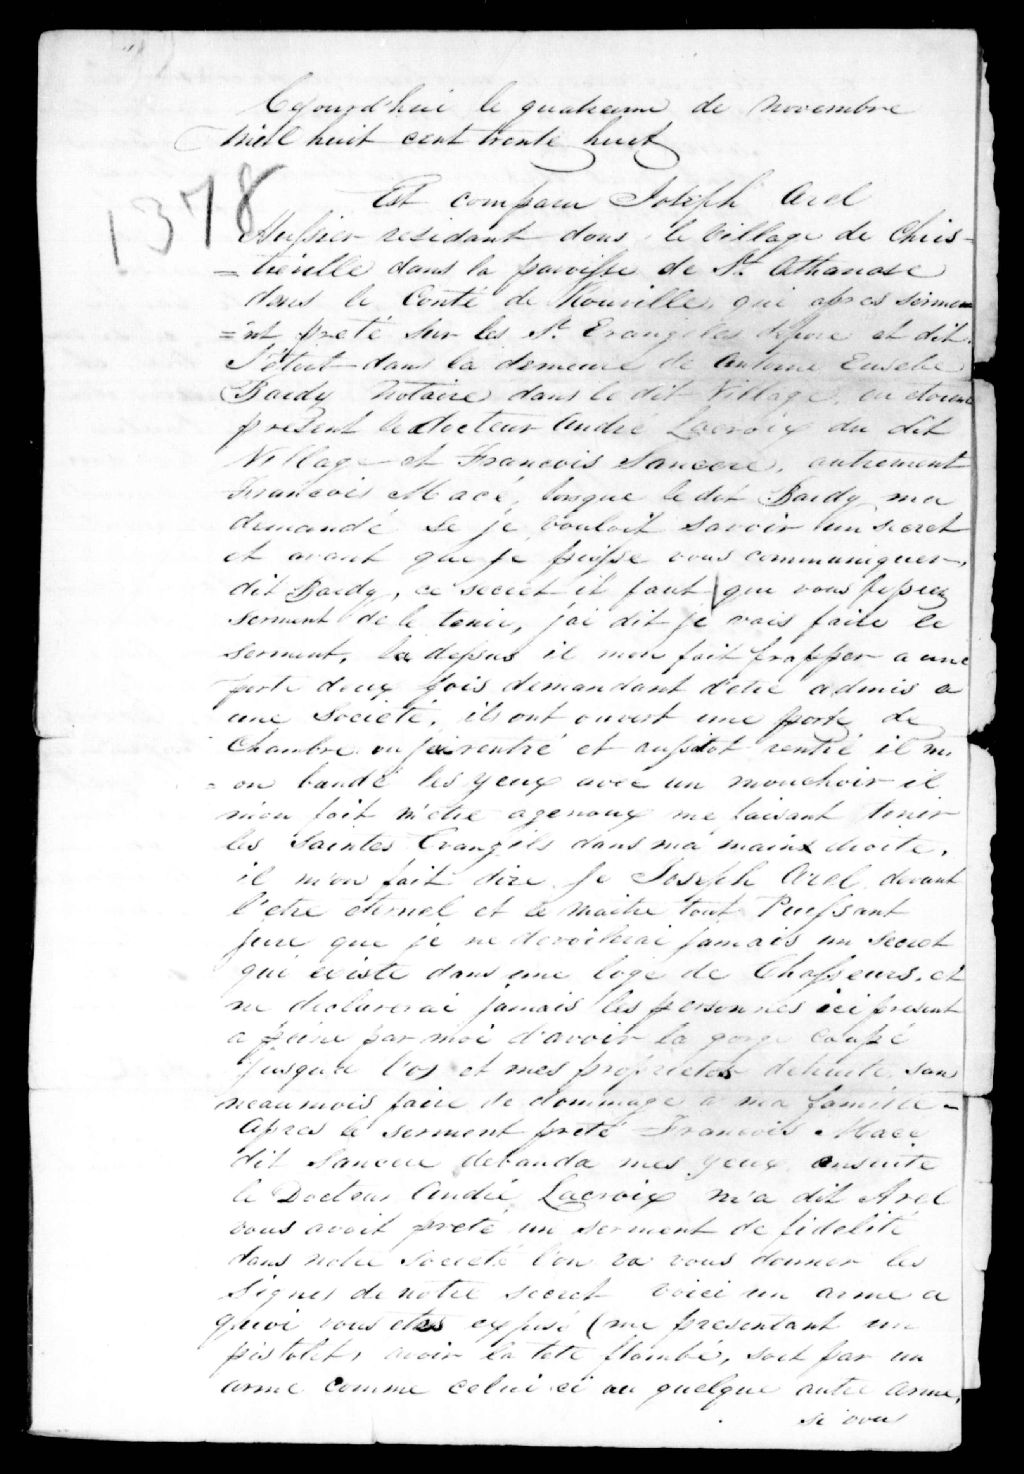 Cejourd'hui le quatrieme de Novembre
Mil huit cent trente huit
1378
Est comparu Joseph Arel
Huissier residant dans le Village de Chris-
=tieville dans la paroisse de St. Athanase
dans le Conté de Rouville, qui apres sermen
=nt preté sur les St. Evangiles depose et dit.
J'étoit dans la demeure de Antoine Eusebe
Bardy Notaire dans le dit Village, en étoient
present le docteur André Lacroix du dit
Village et Francois Sancere, autrement
Francois Macé, lorsque le dit Bardy ma
demandé se je vouloit savoir un secret
et avant que je puisse vous communiquer,
dit Bardy, ce secret il faut que vous fessiez
serment de le tenir, j'ai dit je vais faire le
serment, la dessus il mon fait frapper a une
porte deux fois demandant d'etre admis a
une Societé, ils ont ouvert une porte de
Chambre ou j'ai rentré et aussitot rentré il m
=on bandé les yeux avec un mouchoir il
m'on fait m'etre agenoux me faisant tenir
les Saintes Evangils dans ma main droite,
il m'on fait dire Je Joseph Arel devant
l'etre eternel et le Maitre tout Puissant
jure que je ne devoilerai jamais un secret
qui existe dans une loge de Chasseurs, et
ne declarerai jamais les personnes ici present
a peine par moi d'avoir la gorge coupé
jusqu'a l'os et mes proprietes detruite sans
neaumois faire de dommage a ma famille -
Apres le serment preté Francois Macé
dit Sancere debanda mes yeux ensuite
le Docteur André Lacroix m'a dit Arel
vous avoit preté un serment de fidelité
dans notre Societé l'on va vous donner les
Signes de notre secret voici un arme a
quoi vous etes exposé (me presentant un
pistolet, avoir la tete flambé, soit par un
arme comme celui ci ou quelque autre arme,
si vous